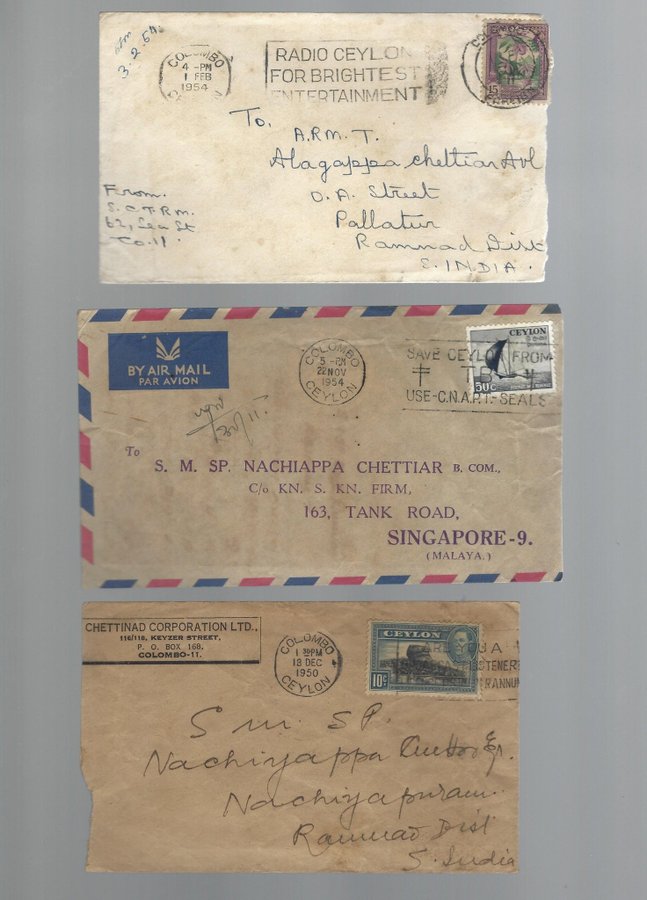 3.2.54
COLOMBO
4 - PM
1 FEB
1954
RADIO CEYLON
FOR BRIGHTEST
ENTERTAINMENT
15
To,
A.RM. T.
Alagappa chettiar Avl
O. A. Street
Pallatur
Ramnad Dist
S. INDIA.
From.
S. C. T. R. M.
62, Sea St
Co. 11.
BY AIR MAIL
PAR AVION
COLOMBO
5 - PM
22 NOV
1954
CEYLON
SAVE CEYLON FROM
T.B.
USE-C.N.A.P.T.-SEALS
CEYLON
50C
To
S. M. SP. NACHIAPPA CHETTIAR B. COM.,
C/o KN. S. KN. FIRM,
163, TANK ROAD,
SINGAPORE-9.
(MALAYA.)
CHETTINAD CORPORATION LTD.,
116/118, KEYZER STREET,
P. O. BOX 168.
COLOMBO-11.
COLOMBO
1 30 PM
13 DEC
1950
CEYLON
CEYLON
10C
ARE YOU A
LISTENER
PER ANNUM
S m. SP.
Nachiyappa
Nachiyapuram.
Ramnad Dist
S. India